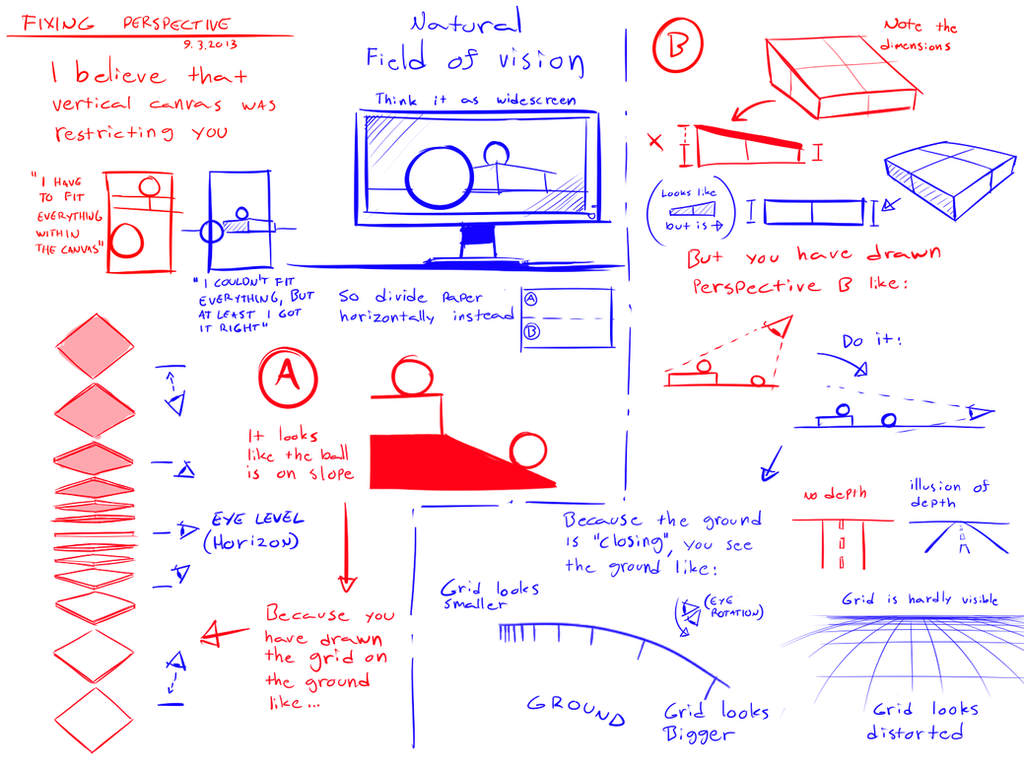 FIXING PERSPECTIVE
9.3.2013
I believe that
vertical canvas was
restricting you
"I HAVE
TO FIT
EVERYTHING
WITHIN
THE CANVAS"
"I COULDN'T FIT
EVERYTHING, BUT
AT LEAST I GOT
IT RIGHT"
Natural
Field of vision
Think it as widescreen
So divide paper
horizontally instead
A
B
A
It looks
like the ball
is on slope
EYE LEVEL
(HORIZON)
Because you
have drawn
the grid on
the ground
like...
B
Note the
dimensions
x
Looks like
but is →
But you have drawn
Perspective B like:
Do it:
no depth
illusion of
depth
Because the ground
is "closing", you see
the ground like:
Grid looks
smaller
(EYE
ROTATION)
GROUND
Grid looks
Bigger
Grid is hardly visible
Grid looks
distorted